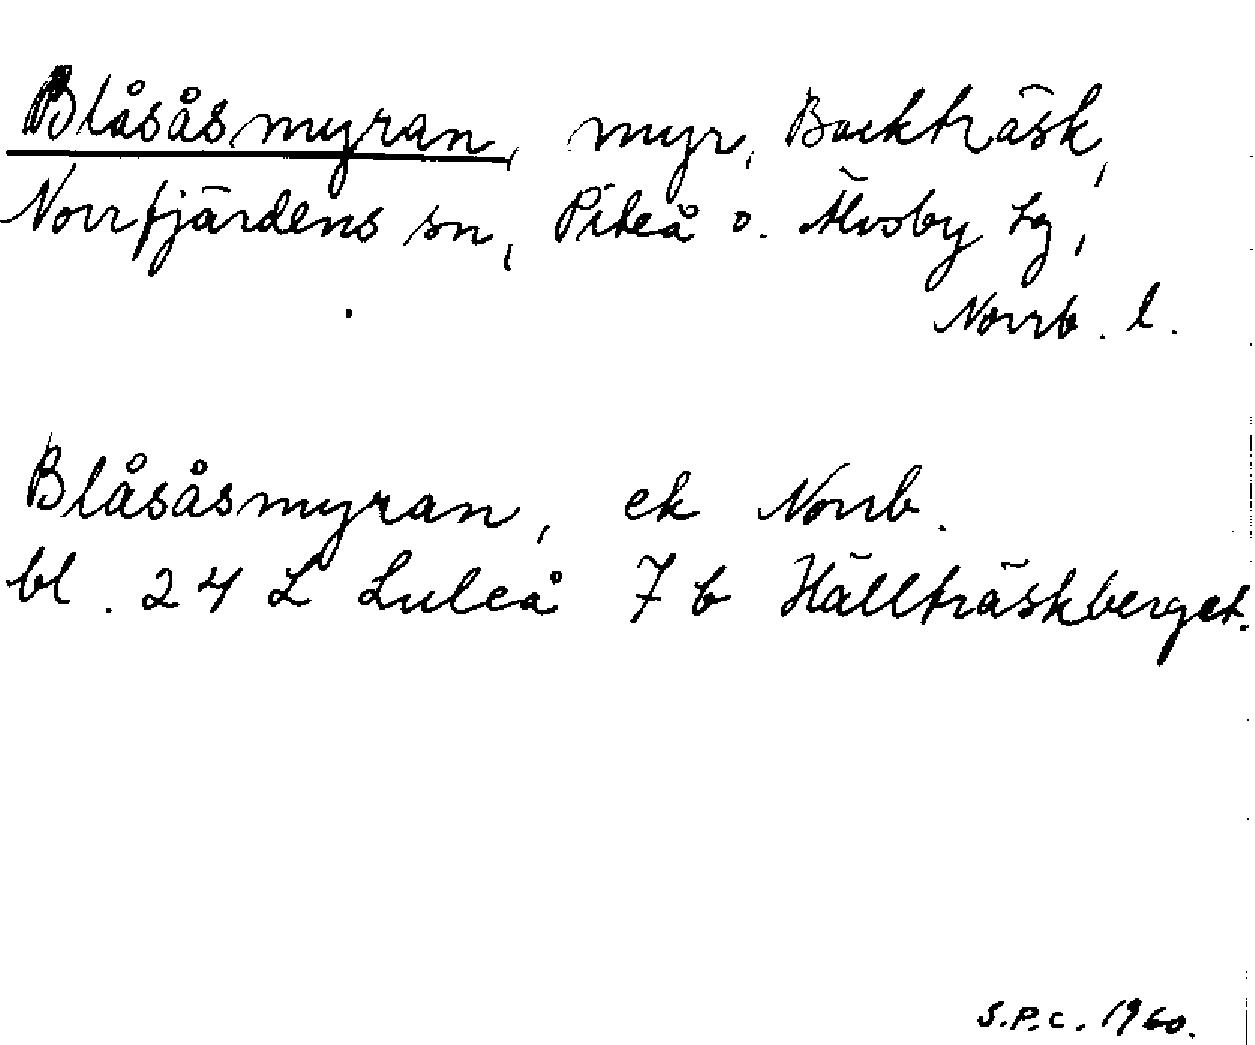 Blåsåsmyran, myr, Backträsk,
Norrfjärdens sn, Piteå o. Älvsby tg,
Norrb. l.
Blåsåsmyran, ek Norrb.
bl. 24 L Luleå 7 b Hällträskberget.
S.P.C. 1960.